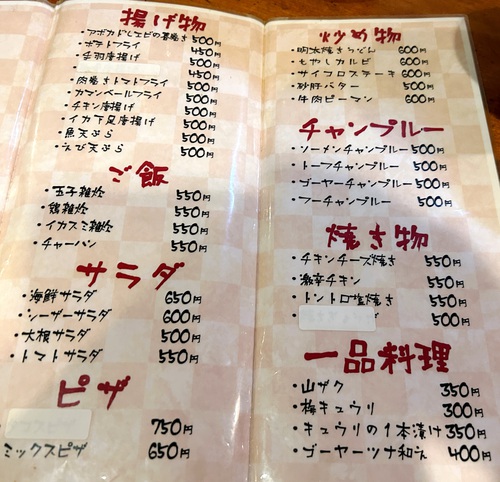 揚げ物
・アボカドとエビの春巻き 500円
・ポテトフライ 450円
・手羽唐揚げ 500円
450円
・肉巻きトマトフライ 500円
・カマンベールフライ 500円
・チキン唐揚げ 500円
・イカ下足唐揚げ 500円
・魚天ぷら 500円
・えび天ぷら 500円
ご飯
・玉子雑炊 550円
・鶏雑炊 550円
・イカスミ雑炊 550円
・チャーハン 550円
サラダ
・海鮮サラダ 650円
・シーザーサラダ 600円
・大根サラダ 500円
・トマトサラダ 550円
ピザ
750円
ミックスピザ 650円
炒め物
・明太焼きうどん 600円
・もやしカルビ 600円
・サイコロステーキ 600円
・砂肝バター 500円
・牛肉ピーマン 600円
チャンプルー
・ソーメンチャンプルー 500円
・トーフチャンプルー 500円
・ゴーヤーチャンプルー 500円
・フーチャンプルー 500円
焼き物
・チキンチーズ焼き 550円
・激辛チキン 550円
・トントロ塩焼き 550円
・ 500円
一品料理
・山ザク 350円
・梅キュウリ 300円
・キュウリの1本漬け 350円
・ゴーヤーツナ和え 400円